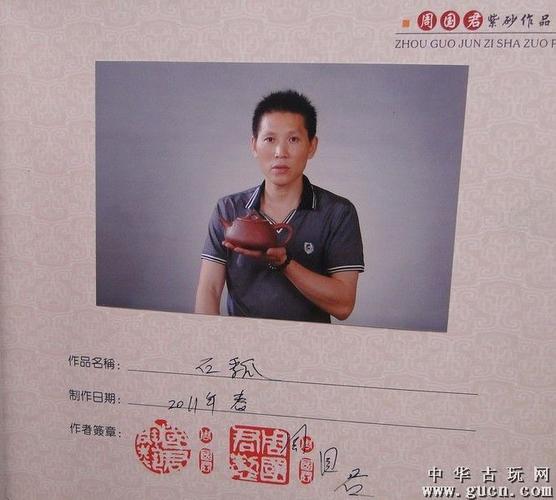 周国君紫砂作品
ZHOU GUO JUN ZI SHA ZUO P
作品名稱： 石瓢
制作日期： 2011年 春
作者簽章： 周国君
中华古玩网
www.gucn.com